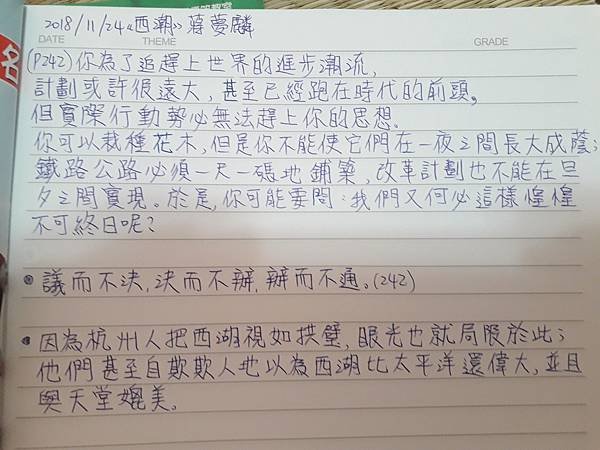 2018/11/24《西潮》蔣夢麟
DATE THEME GRADE
(P242)你為了追趕上世界的進步潮流,
計劃或許很遠大,甚至已經跑在時代的前頭。
但實際行動勢必無法趕上你的思想.
你可以栽種花木,但是你不能使它們在一夜之間長大成蔭;
鐵路公路必須一尺一碼地鋪築,改革計劃也不能在旦
夕之間實現。於是,你可能要問:我們又何必這樣惶惶
不可終日呢?
議而不決,決而不辦,辦而不通。(242)
因為杭州人把西湖視如拱璧,眼光也就局限於此;
他們甚至自欺欺人地以為西湖比太平洋還偉大,並且
與天堂媲美。
名